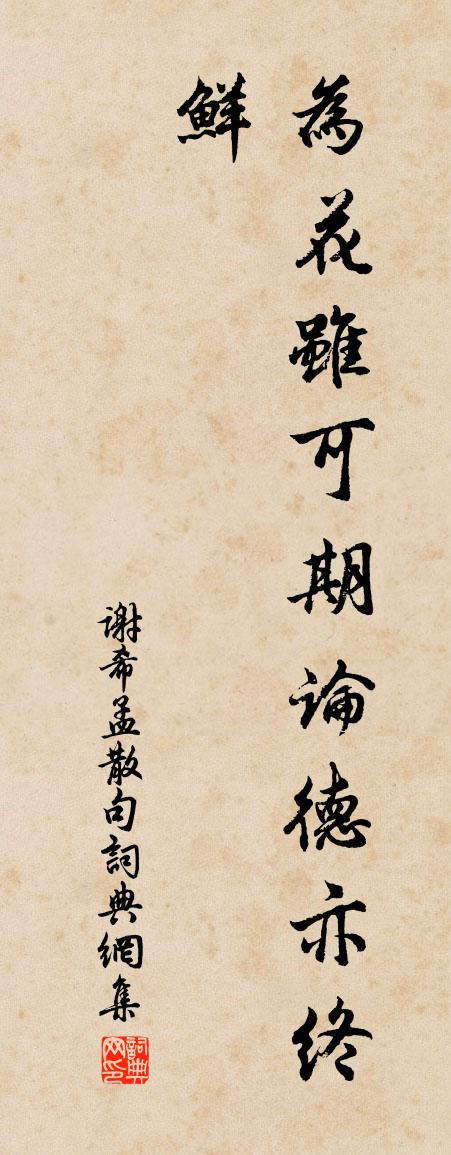 為花雖可期論德亦終
鮮
謝希孟散句詞典網集
詞典
网印